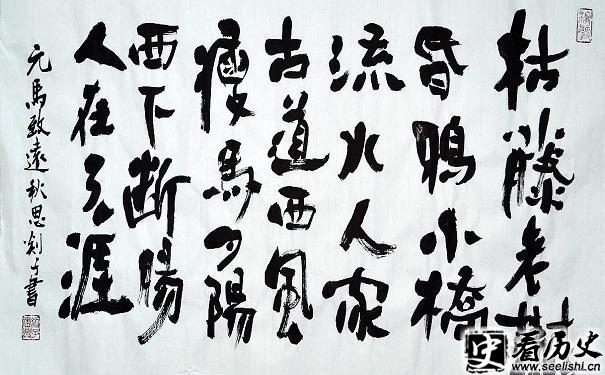 枯藤老树
昏鴉小橋
流水人家
古道西風
瘦馬夕陽
西下断腸
人在天涯
元馬致遠秋思書
史 看历史
www.seelishi.cn